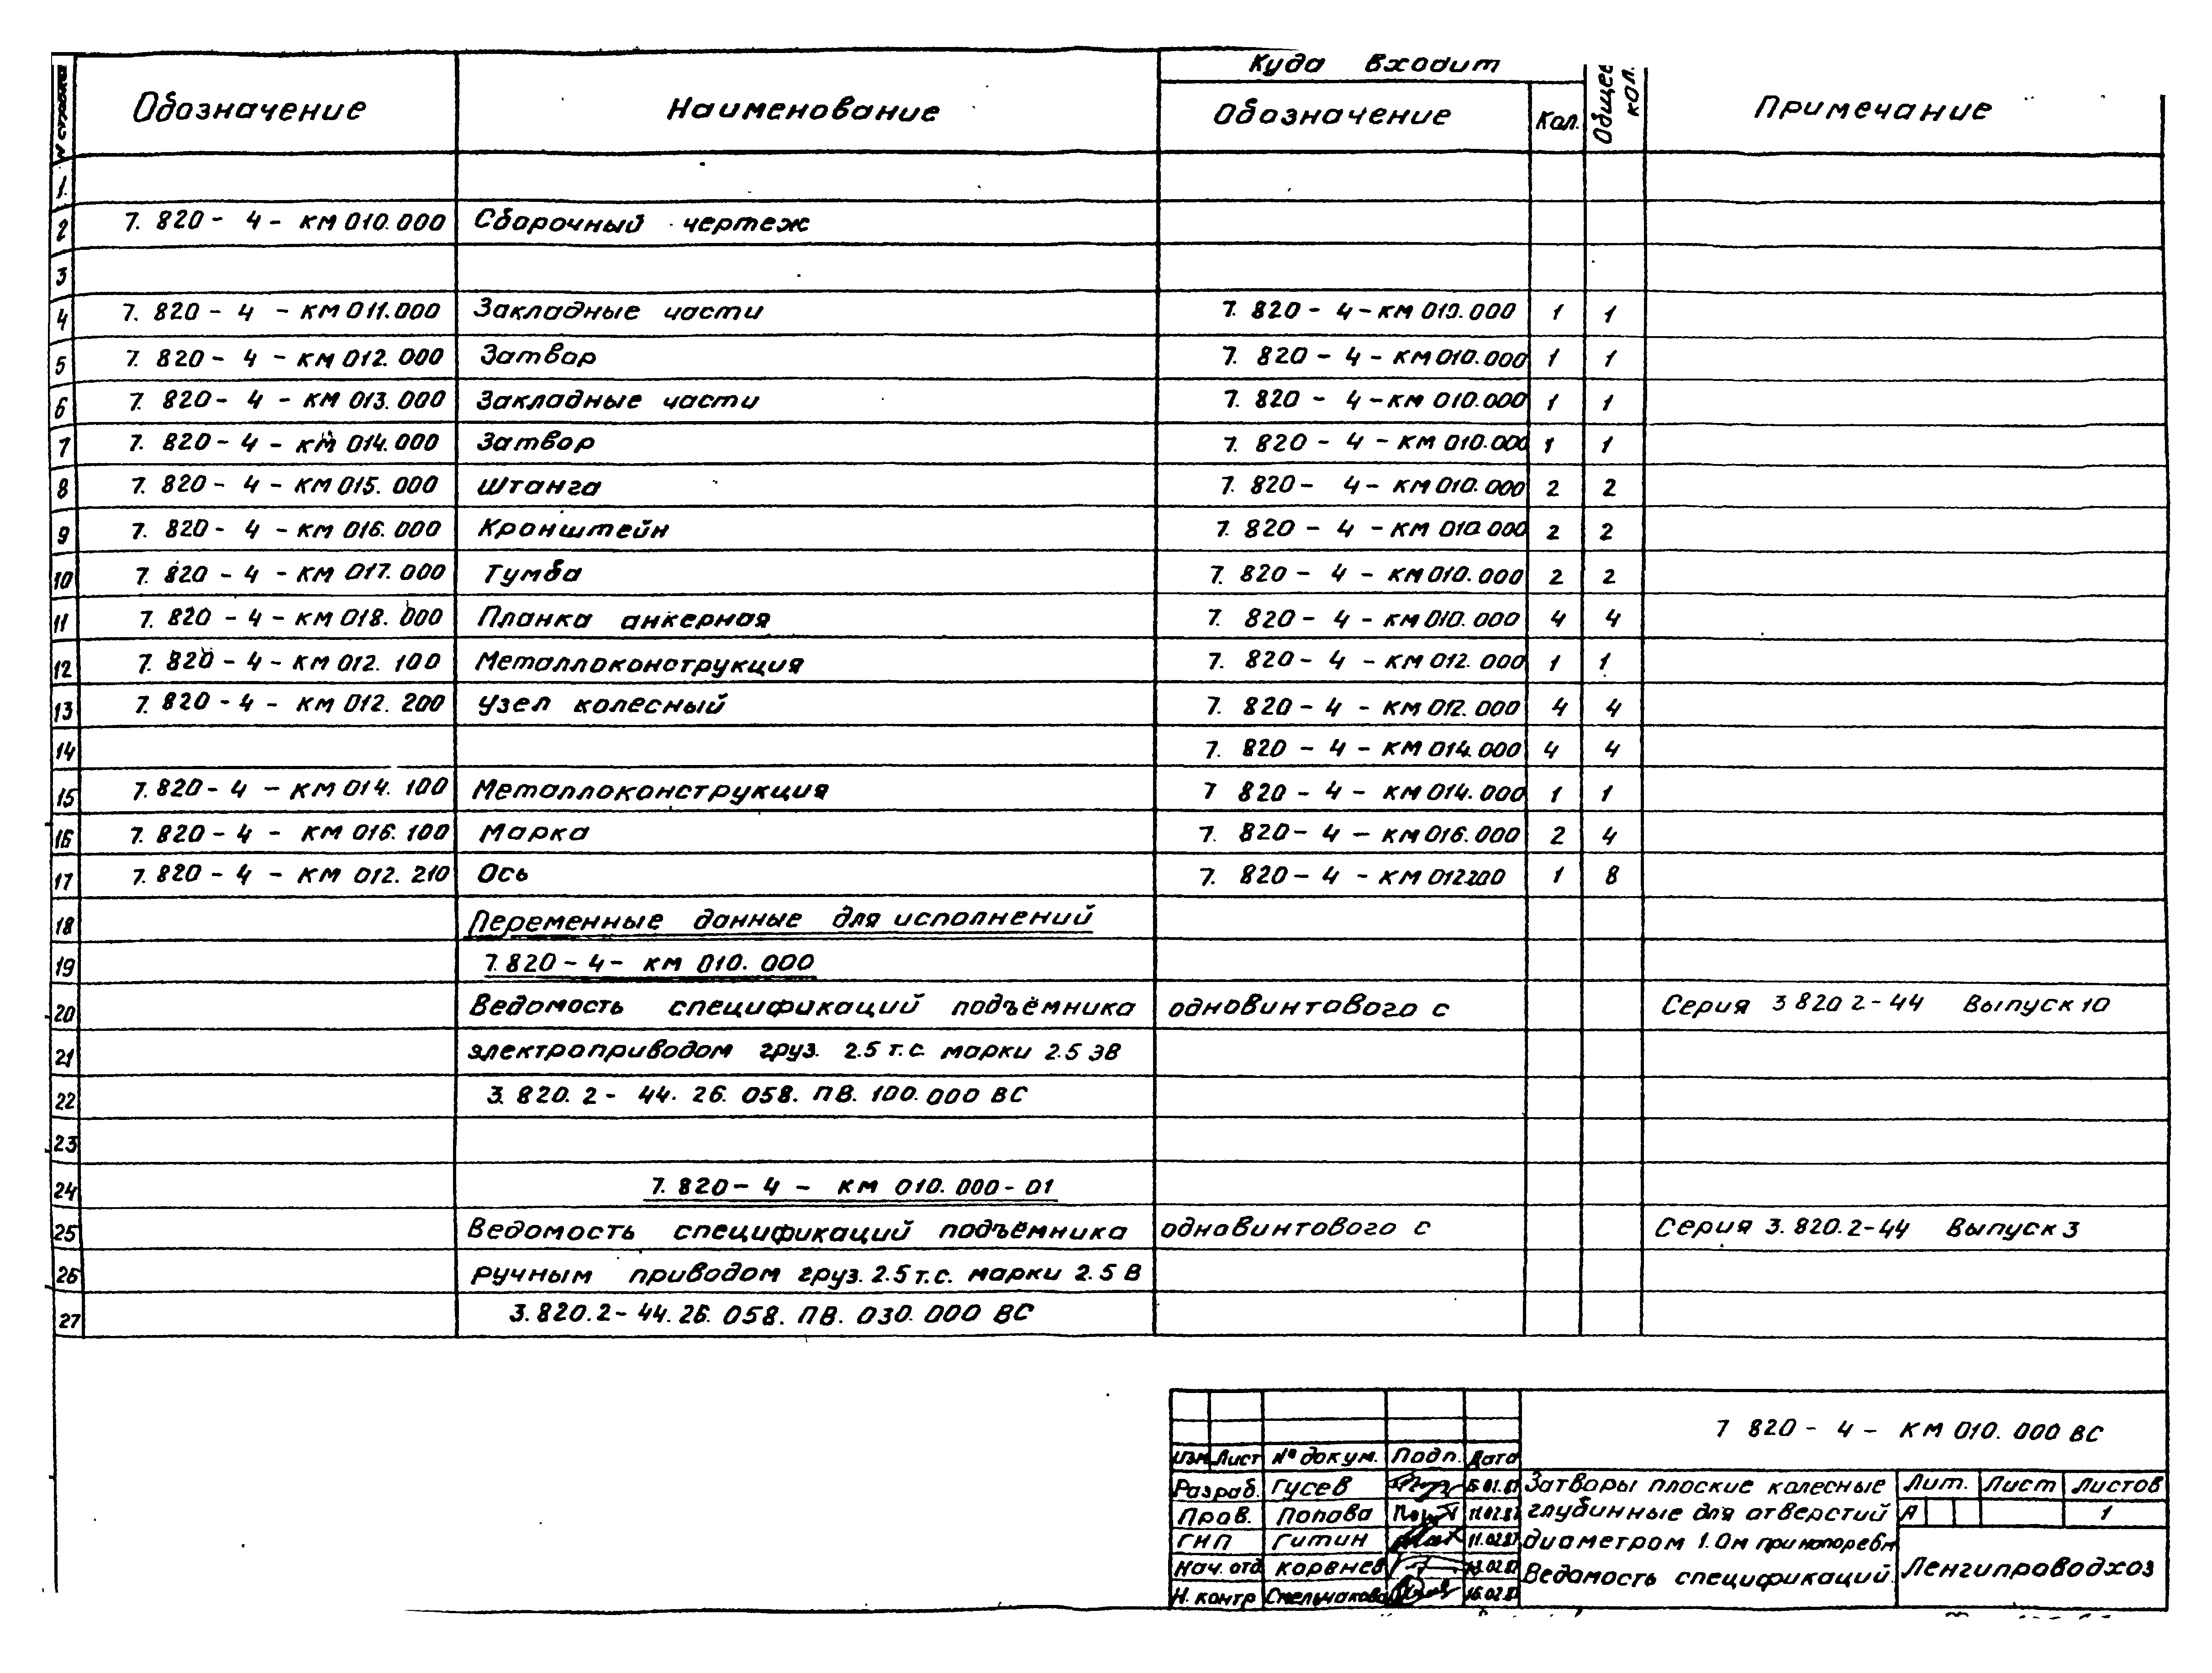 № строки Обозначение Наименование Куда входит Общее кол. Примечание
Обозначение Кол.
1
2 7.820-4-КМ 010.000 Сборочный чертеж
3
4 7.820-4-КМ 011.000 Закладные части 7.820-4-КМ 010.000 1 1
5 7.820-4-КМ 012.000 Затвор 7.820-4-КМ 010.000 1 1
6 7.820-4-КМ 013.000 Закладные части 7.820-4-КМ 010.000 1 1
7 7.820-4-КМ 014.000 Затвор 7.820-4-КМ 010.000 1 1
8 7.820-4-КМ 015.000 Штанга 7.820-4-КМ 010.000 2 2
9 7.820-4-КМ 016.000 Кронштейн 7.820-4-КМ 010.000 2 2
10 7.820-4-КМ 017.000 Тумба 7.820-4-КМ 010.000 2 2
11 7.820-4-КМ 018.000 Планка анкерная 7.820-4-КМ 010.000 4 4
12 7.820-4-КМ 012.100 Металлоконструкция 7.820-4-КМ 012.000 1 1
13 7.820-4-КМ 012.200 Узел колесный 7.820-4-КМ 012.000 4 4
14 7.820-4-КМ 014.000 4 4
15 7.820-4-КМ 014.100 Металлоконструкция 7 820-4-КМ 014.000 1 1
16 7.820-4-КМ 016.100 Марка 7.820-4-КМ 016.000 2 4
17 7.820-4-КМ 012.210 Ось 7.820-4-КМ 012.200 1 8
18 Переменные данные для исполнений
19 7.820-4-КМ 010.000
20 Ведомость спецификаций подъёмника одновинтового с Серия 3 820 2-44 Выпуск 10
21 электроприводом груз. 2.5 т.с. марки 2.5 ЭВ
22 3.820.2-44.26.058.ПВ.100.000 ВС
23
24 7.820-4-КМ 010.000-01
25 Ведомость спецификаций подъёмника одновинтового с Серия 3.820.2-44 Выпуск 3
26 ручным приводом груз. 2.5 т.с. марки 2.5 В
27 3.820.2-44.26.058.ПВ.030.000 ВС
7 820-4-КМ 010.000 ВС
Изм Лист № докум. Подп. Дата
Разраб. Гусев Затворы плоские колесные Лит. Лист Листов
Пров. Попова 11.02.87 глубинные для отверстий А 1
ГИП Гитин 11.02.87 диаметром 1.0м при напоре 6м
Нач. отд Корвнев Ведомость спецификаций Ленгипроводхоз
Н. контр Смельчакова 16.02.87